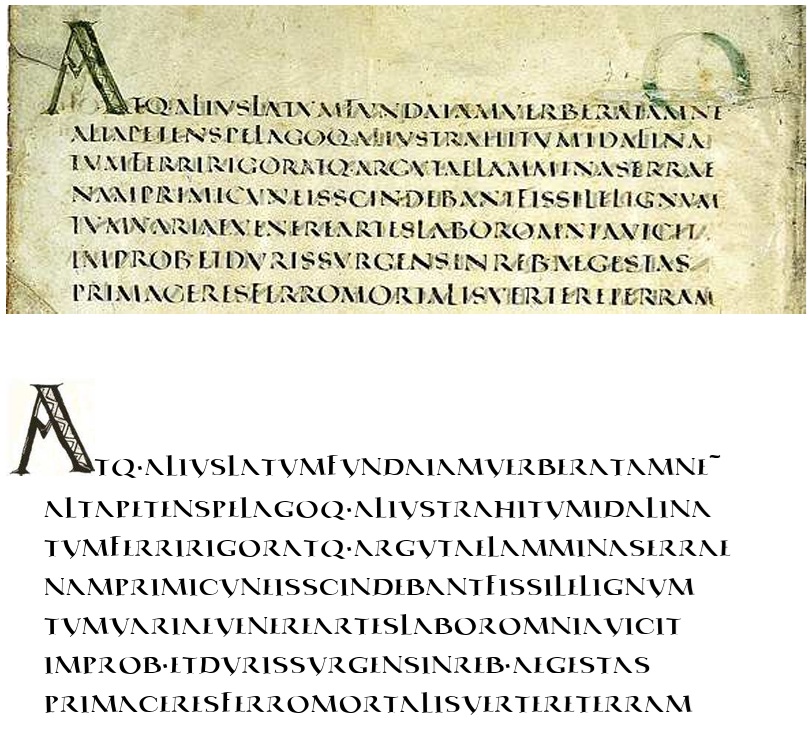 ATQ·ALIVSLATVMFVNDAIAMVERBERATAMNE
ALTAPETENSPELAGOQ·ALIVSTRAHITVMIDALINA
TVMFERRIRIGORATQ·ARGVTAELAMMINASERRAE
NAMPRIMICVNEISSCINDEBANTFISSILELIGNVM
TVMVARIAEVENEREARTESLABOROMNIAVICIT
IMPROB·ETDVRISSVRGENSINREB·AEGESTAS
PRIMACERESFERROMORTALISVERTERETERRAM
ATQ·ALIVSLATVMFVNDAIAMVERBERATAMNE˜
ALTAPETENSPELAGOQ·ALIVSTRAHITVMIDALINA
TVMFERRIRIGORATQ·ARGVTAELAMMINASERRAE
NAMPRIMICVNEISSCINDEBANTFISSILELIGNVM
TVMVARIAEVENEREARTESLABOROMNIAVICIT
IMPROB·ETDVRISSVRGENSINREB·AEGESTAS
PRIMACERESFERROMORTALISVERTERETERRAM